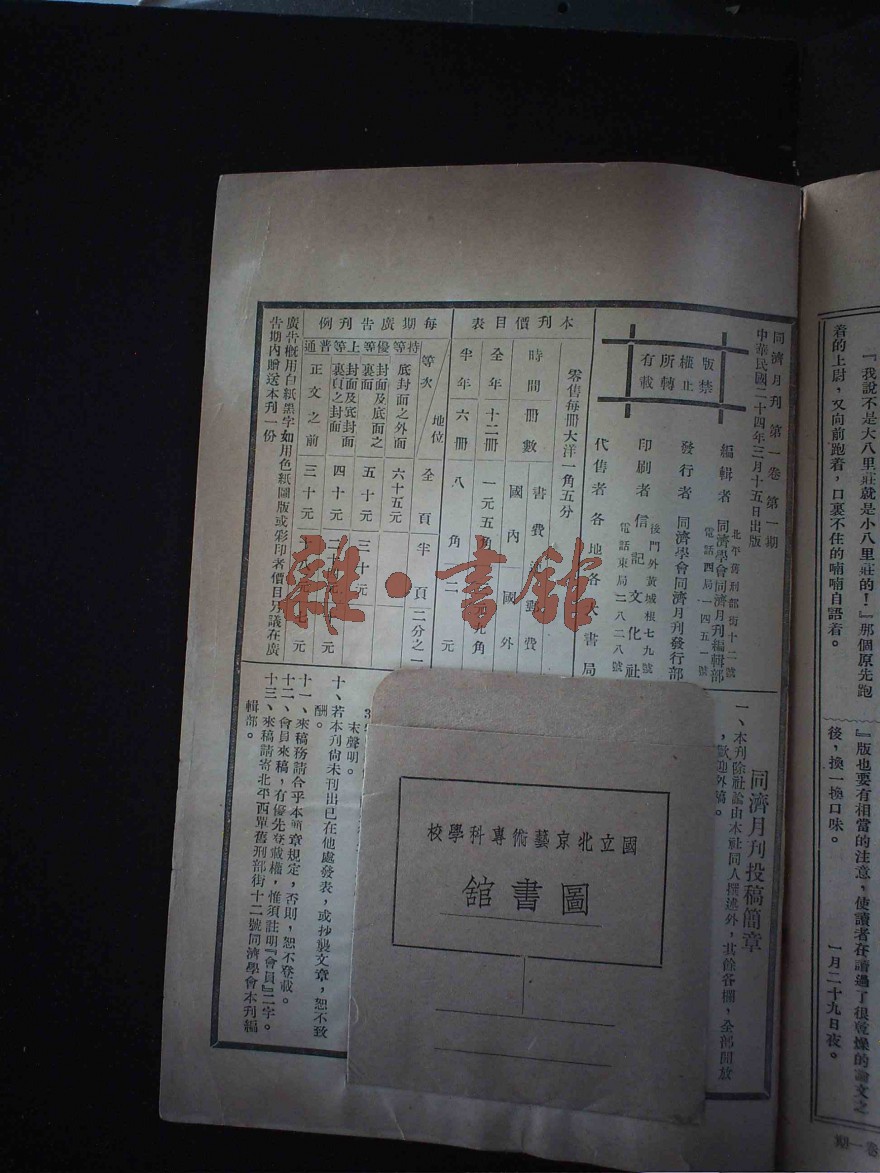 『「我說不是大八里莊就是小八里莊的！」那個原先跑
着的上尉，又向前跑着，口裏不住的喃喃自語着。
『版也要有相當的注意，使讀者在讀過了很乾燥的論文之
後，換一換口味。
一月二十九日夜。
同濟月刊 第一卷 第一期
中華民國二十四年三月十五日出版
版權所有
禁止轉載
編輯者 同濟學會同濟月刊編輯部
北平舊刑部街十二號
電話西局一四五
發行者 同濟學會同濟月刊發行部
印刷者 信記文化社
後門外黃城根七九號
電話東局二八二八號
代售者 各地各大書局
本刊價目表
零售每冊大洋一角五分
時間 冊數 書費 郵費
國內 國外
全年 十二冊 一元五角 九角
半年 六冊 八角 二元
每期廣告刊例
等次 地位 全頁 半頁 二分之一
特等 底封面之外面 六十五元
優等 封面及底面之裏面 五十元 三十元
上等 封面及底封面裏頁之封面 四十元 二十 十元
普通 正文之前 三十元 十八元 七元
廣告概用白紙黑字如用色紙圖版或彩印者價目另議在廣
告期內贈送本刊一份
同濟月刊投稿簡章
一、本刊除社論由本社同人撰述外，其餘各欄，全部開放
，歡迎外稿。
末聲明。
十、若本刊尚未刊出已在他處發表，或抄襲文章，恕不致
酬。
十一、來稿務請合乎本簡章規定，否則，恕不登載。
十二、會員來稿，有優先登載權，惟須註明『會員』二字。
十三、來稿請寄北平西單舊刑部街十二號同濟學會本刊編
輯部。
國立北京藝術專科學校
圖書館
雜·書館